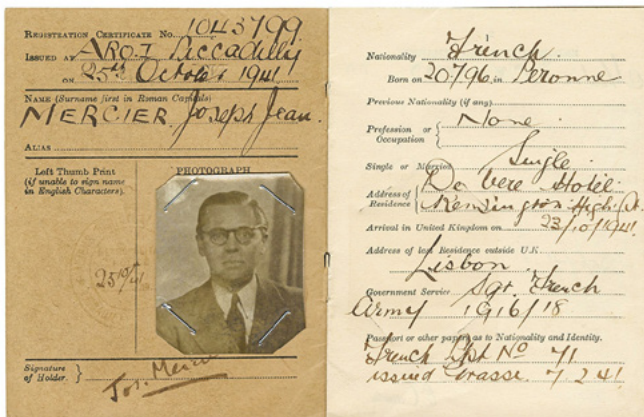 REGISTRATION CERTIFICATE No. 1043799
ISSUED AT ARO.I Piccadilly
ON 25th October 1941
NAME (Surname first in Roman Capitals)
MERCIER Joseph Jean.
ALIAS
Left Thumb Print
(if unable to sign name
in English Characters).
PHOTOGRAPH
25/10/41
Signature
of Holder.
Jos. Mercier
Nationality French.
Born on 20/7/96 in Peronne
Previous Nationality (if any)
None
Profession or
Occupation
Single or Married Single
Address of
Residence
De Vere Hotel
Kensington High St.
Arrival in United Kingdom on 23/10/1941
Address of last Residence outside U.K.
Lisbon.
Government Service Sgt. French
Army 1916/18
Passport or other papers as to Nationality and Identity.
French Ppt No 71
issued Grasse. 7.2.41